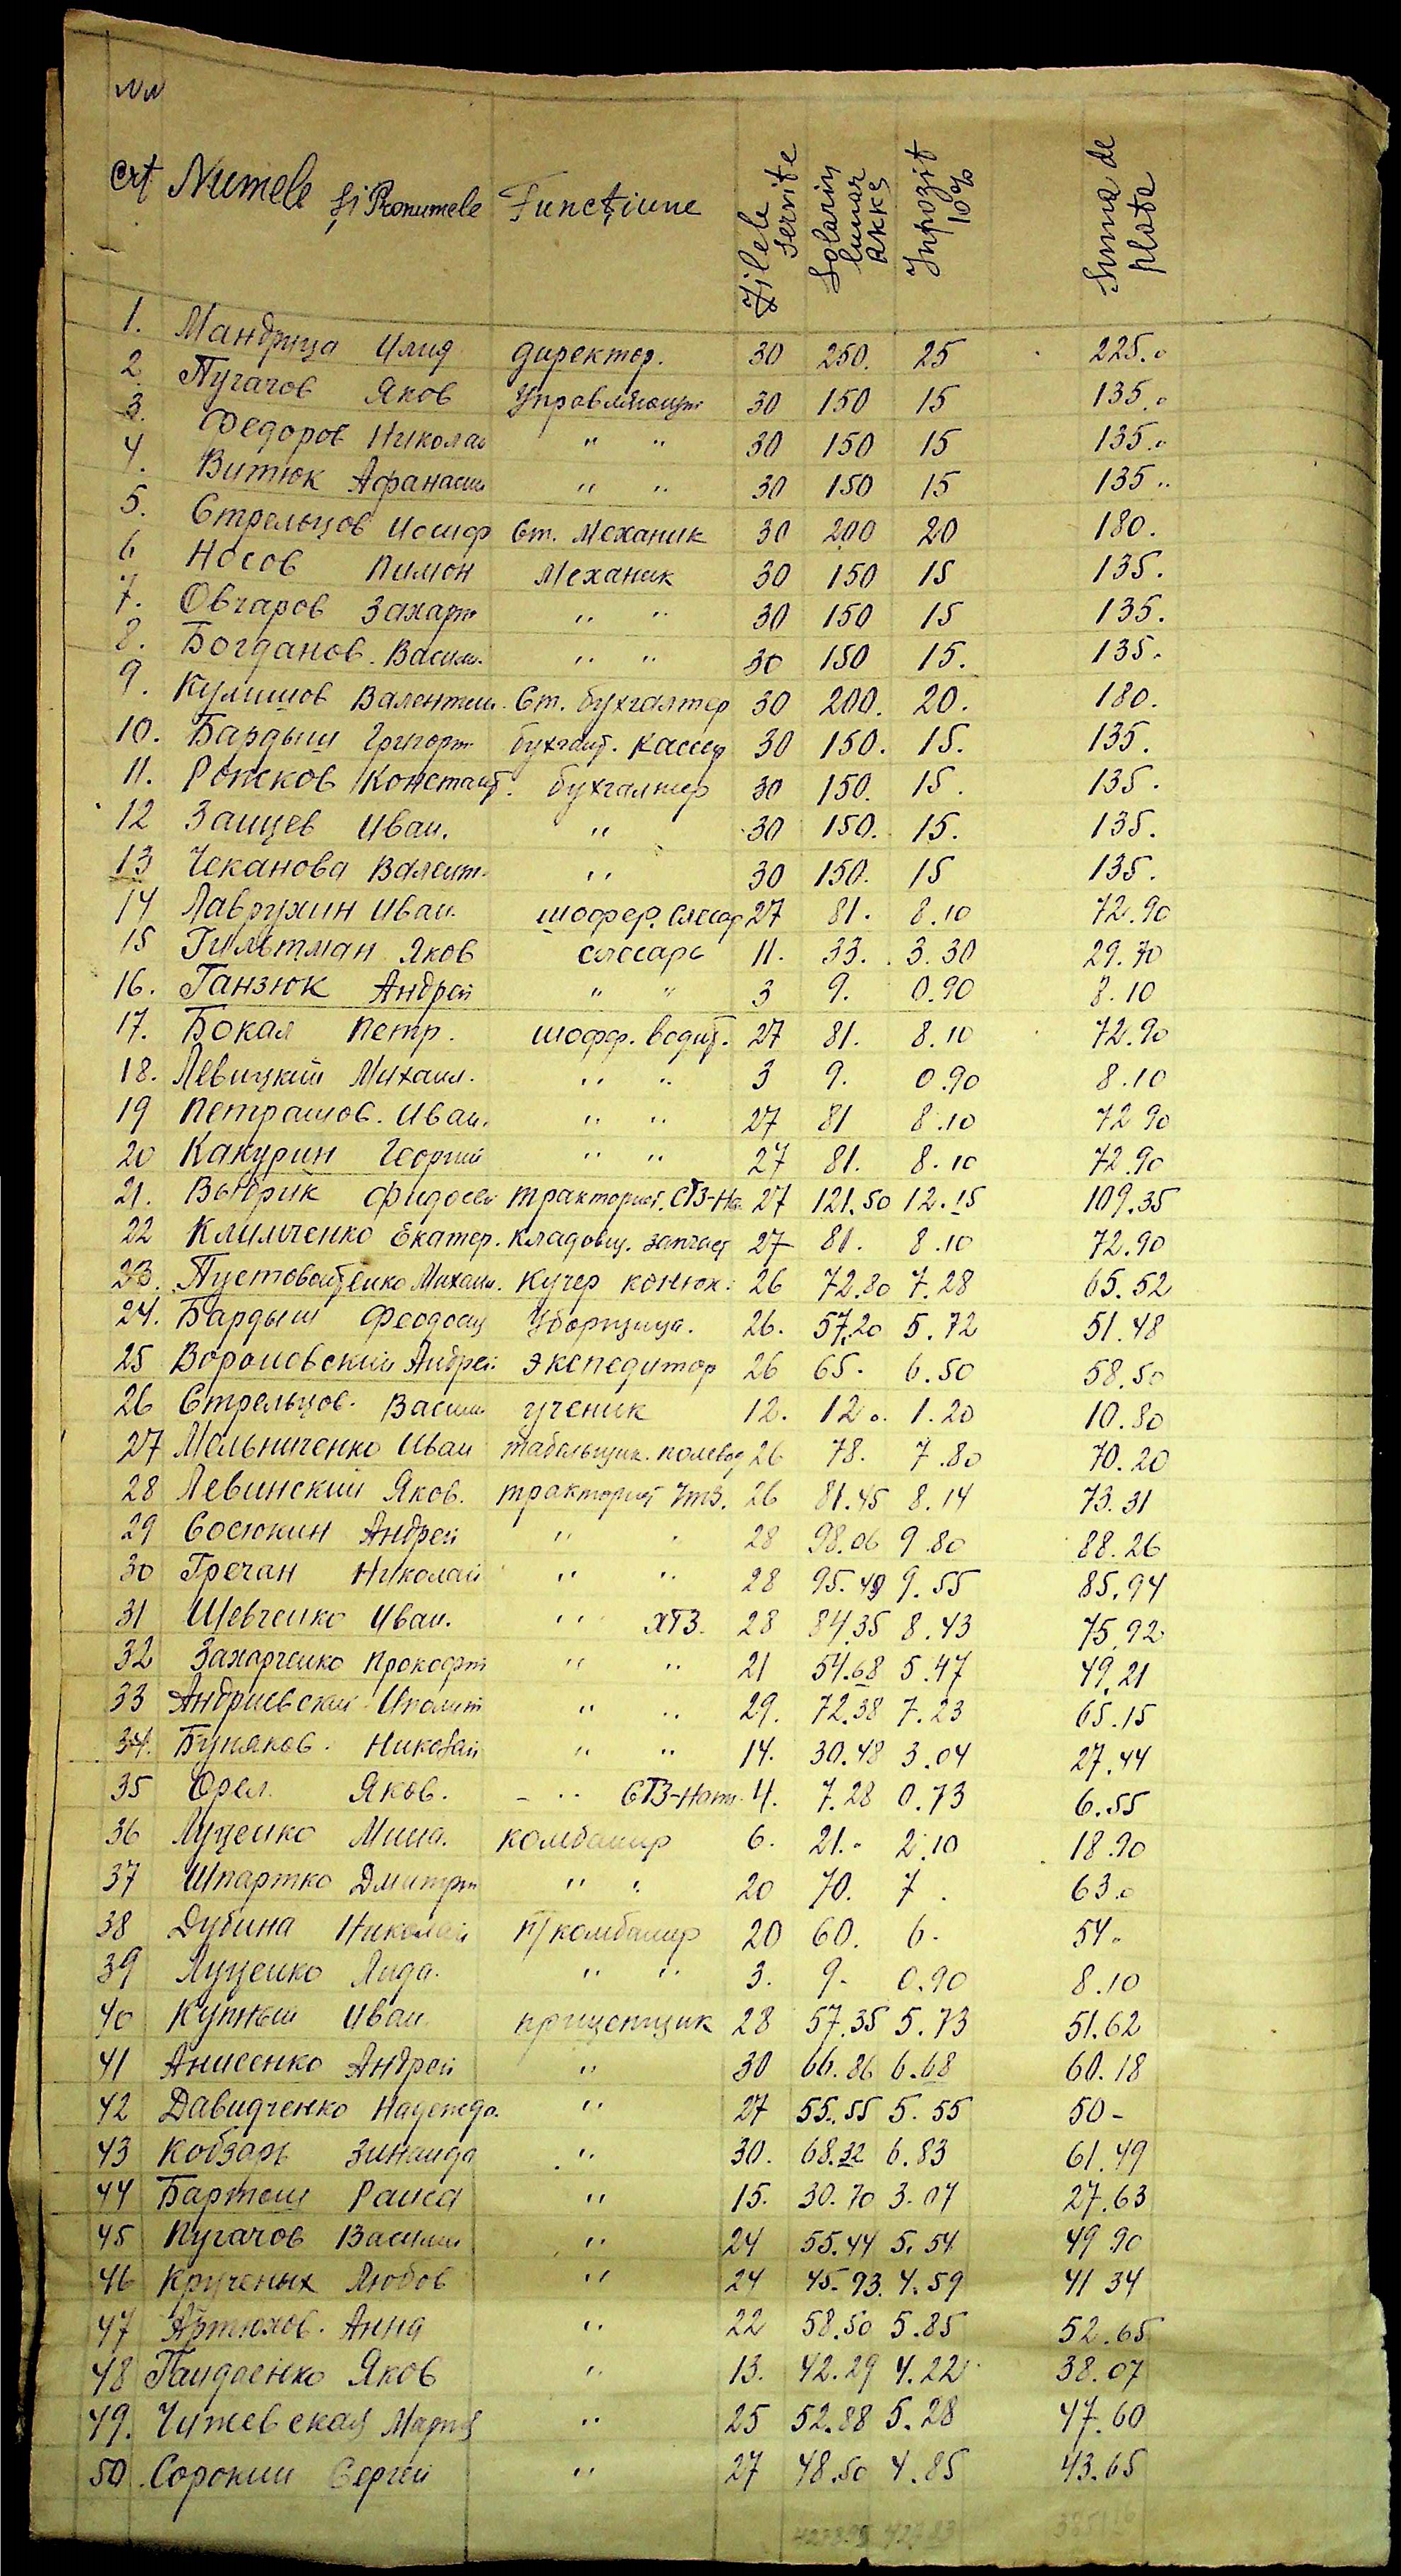 NN
crt Numele și Pronumele Funcțiune Zilele servite Solariu lunar RKKS Inpozit 10% Suma de plata
1. Мандрица Илия директор. 30 250. 25 225.0
2 Пугачов Яков Управляющи 30 150 15 135.0
3. Федоров Николай " " 30 150 15 135.0
4. Витюк Афанасий " " 30 150 15 135..
5. Стрельцов Иосиф Ст. Механик 30 200 20 180.
6 Носов Пимон Механик 30 150 15 135.
7. Овчаров Захари " " 30 150 15 135.
8. Богданов. Васил. " " 30 150 15. 135.
9. Кулишов Валентин. Ст. бухгалтер 30 200. 20. 180.
10. Бардыш Григори бухгалт. Кассир 30 150. 15. 135.
11. Рожков Констант. бухгалтер 30 150. 15. 135.
12 Заицев Иван. " 30 150. 15. 135.
13 Чеканова Валент. " 30 150. 15 135.
14 Лаврухин Иван. шофер. Слесар 27 81. 8.10 72.90
15 Гильтман Яков слесарь 11. 33. 3.30 29.70
16. Ганзюк Андрей " " 3 9. 0.90 8.10
17. Бокал Петр. шофф. водит. 27 81. 8.10 72.90
18. Левицкий Михаил. " " 3 9. 0.90 8.10
19 Петрашов. Иван. " " 27 81 8.10 72 90
20 Какурин Георгий " " 27 81. 8.10 72.90
21. Вындрик Фидосей тракторист. СТЗ-На. 27 121.50 12.15 109.35
22 Климченко Екатер. кладовщ. запчаст 27 81. 8.10 72.90
23. Пустовойтенко Михаил. Кучер конюх. 26 72.80 7.28 65.52
24. Бардыш Феодосия Уборщица. 26. 57.20 5.72 51.48
25 Вороновский Андрей экспедитор 26 65. 6.50 58.50
26 Стрельцов. Васили ученик 12. 12.0. 1.20 10.80
27 Мельниченко Иван табельщик. полевод 26 78. 7.80 70.20
28 Левинский Яков. тракторист УТЗ. 26 81.45 8.14 73.31
29 Сосюкин Андрей " " 28 98.06 9.80 88.26
30 Гречан Николай " " 28 95.49 9.55 85.94
31 Шевченко Иван. " ХТЗ. 28 84.35 8.43 75.92
32 Захарченко Прокофи " " 21 54.68 5.47 49.21
33 Андриевский Иполит " " 29. 72.38 7.23 65.15
34. Буняков. Николай " " 14. 30.48 3.04 27.44
35 Орел. Яков. - " СТЗ-Нати. 4. 7.28 0.73 6.55
36 Луценко Мина. комбайнир 6. 21.- 2.10 18.90
37 Шпартко Дмитри " " 20 70. 7. 63.0
38 Дубина Николай п/комбайнир 20 60. 6. 54.
39 Луценко Лида. " " 3. 9. 0.90 8.10
40 Кутный Иван. прицепщик 28 57.35 5.73 51.62
41 Анисенко Андрей " 30 66.86 6.68 60.18
42 Давидченко Надежда. " 27 55.55 5.55 50-
43 Кобзарь Зинаида " 30. 68.32 6.83 61.49
44 Бартош Раиса " 15. 30.70 3.07 27.63
45 Пугачов Василий " 24 55.44 5.54 49 90
46 Крученых Любов " 24 45.93. 4.59 41 34
47 Артюхов. Анна " 22 58.50 5.85 52.65
48 Гайдаенко Яков " 13. 42.29 4.22 38.07
49. Чижевская Мария " 25 52.88 5.28 47.60
50. Сорокин Сергей " 27 48.50 4.85 43.65